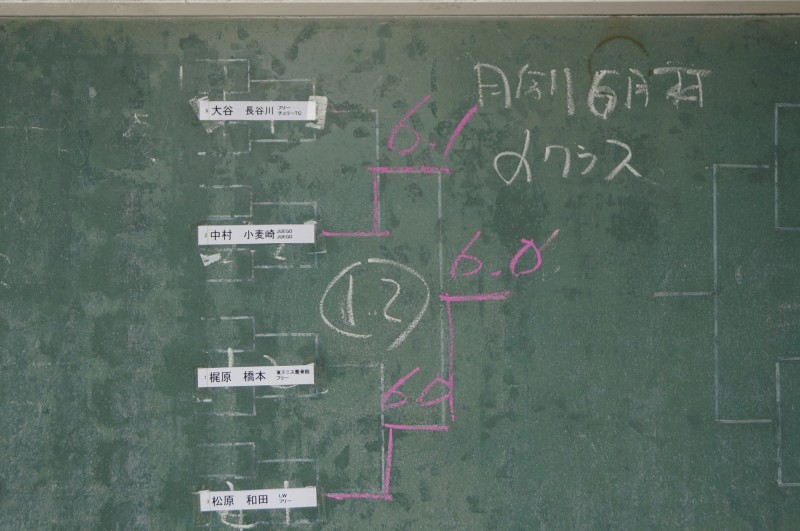 月例6月杯
αクラス
大谷 長谷川 フリー
チェリーTC
6.1
中村 小麦崎 JUEGO
JUEGO
6.0
1.2
梶原 橋本
フリー
60
松原 和田 LW
フリー